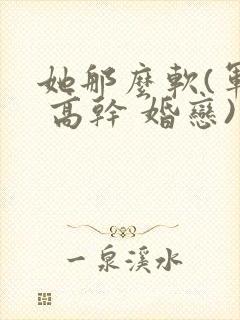 她那麼軟(軍
高幹 婚戀)
一泉溪水